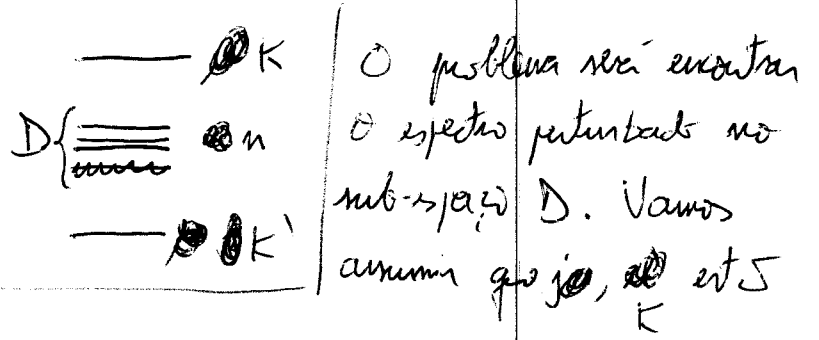 K
D { n
K'
O problema será encontrar
O espectro perturbado no
sub-espaço D. Vamos
assumir que
K